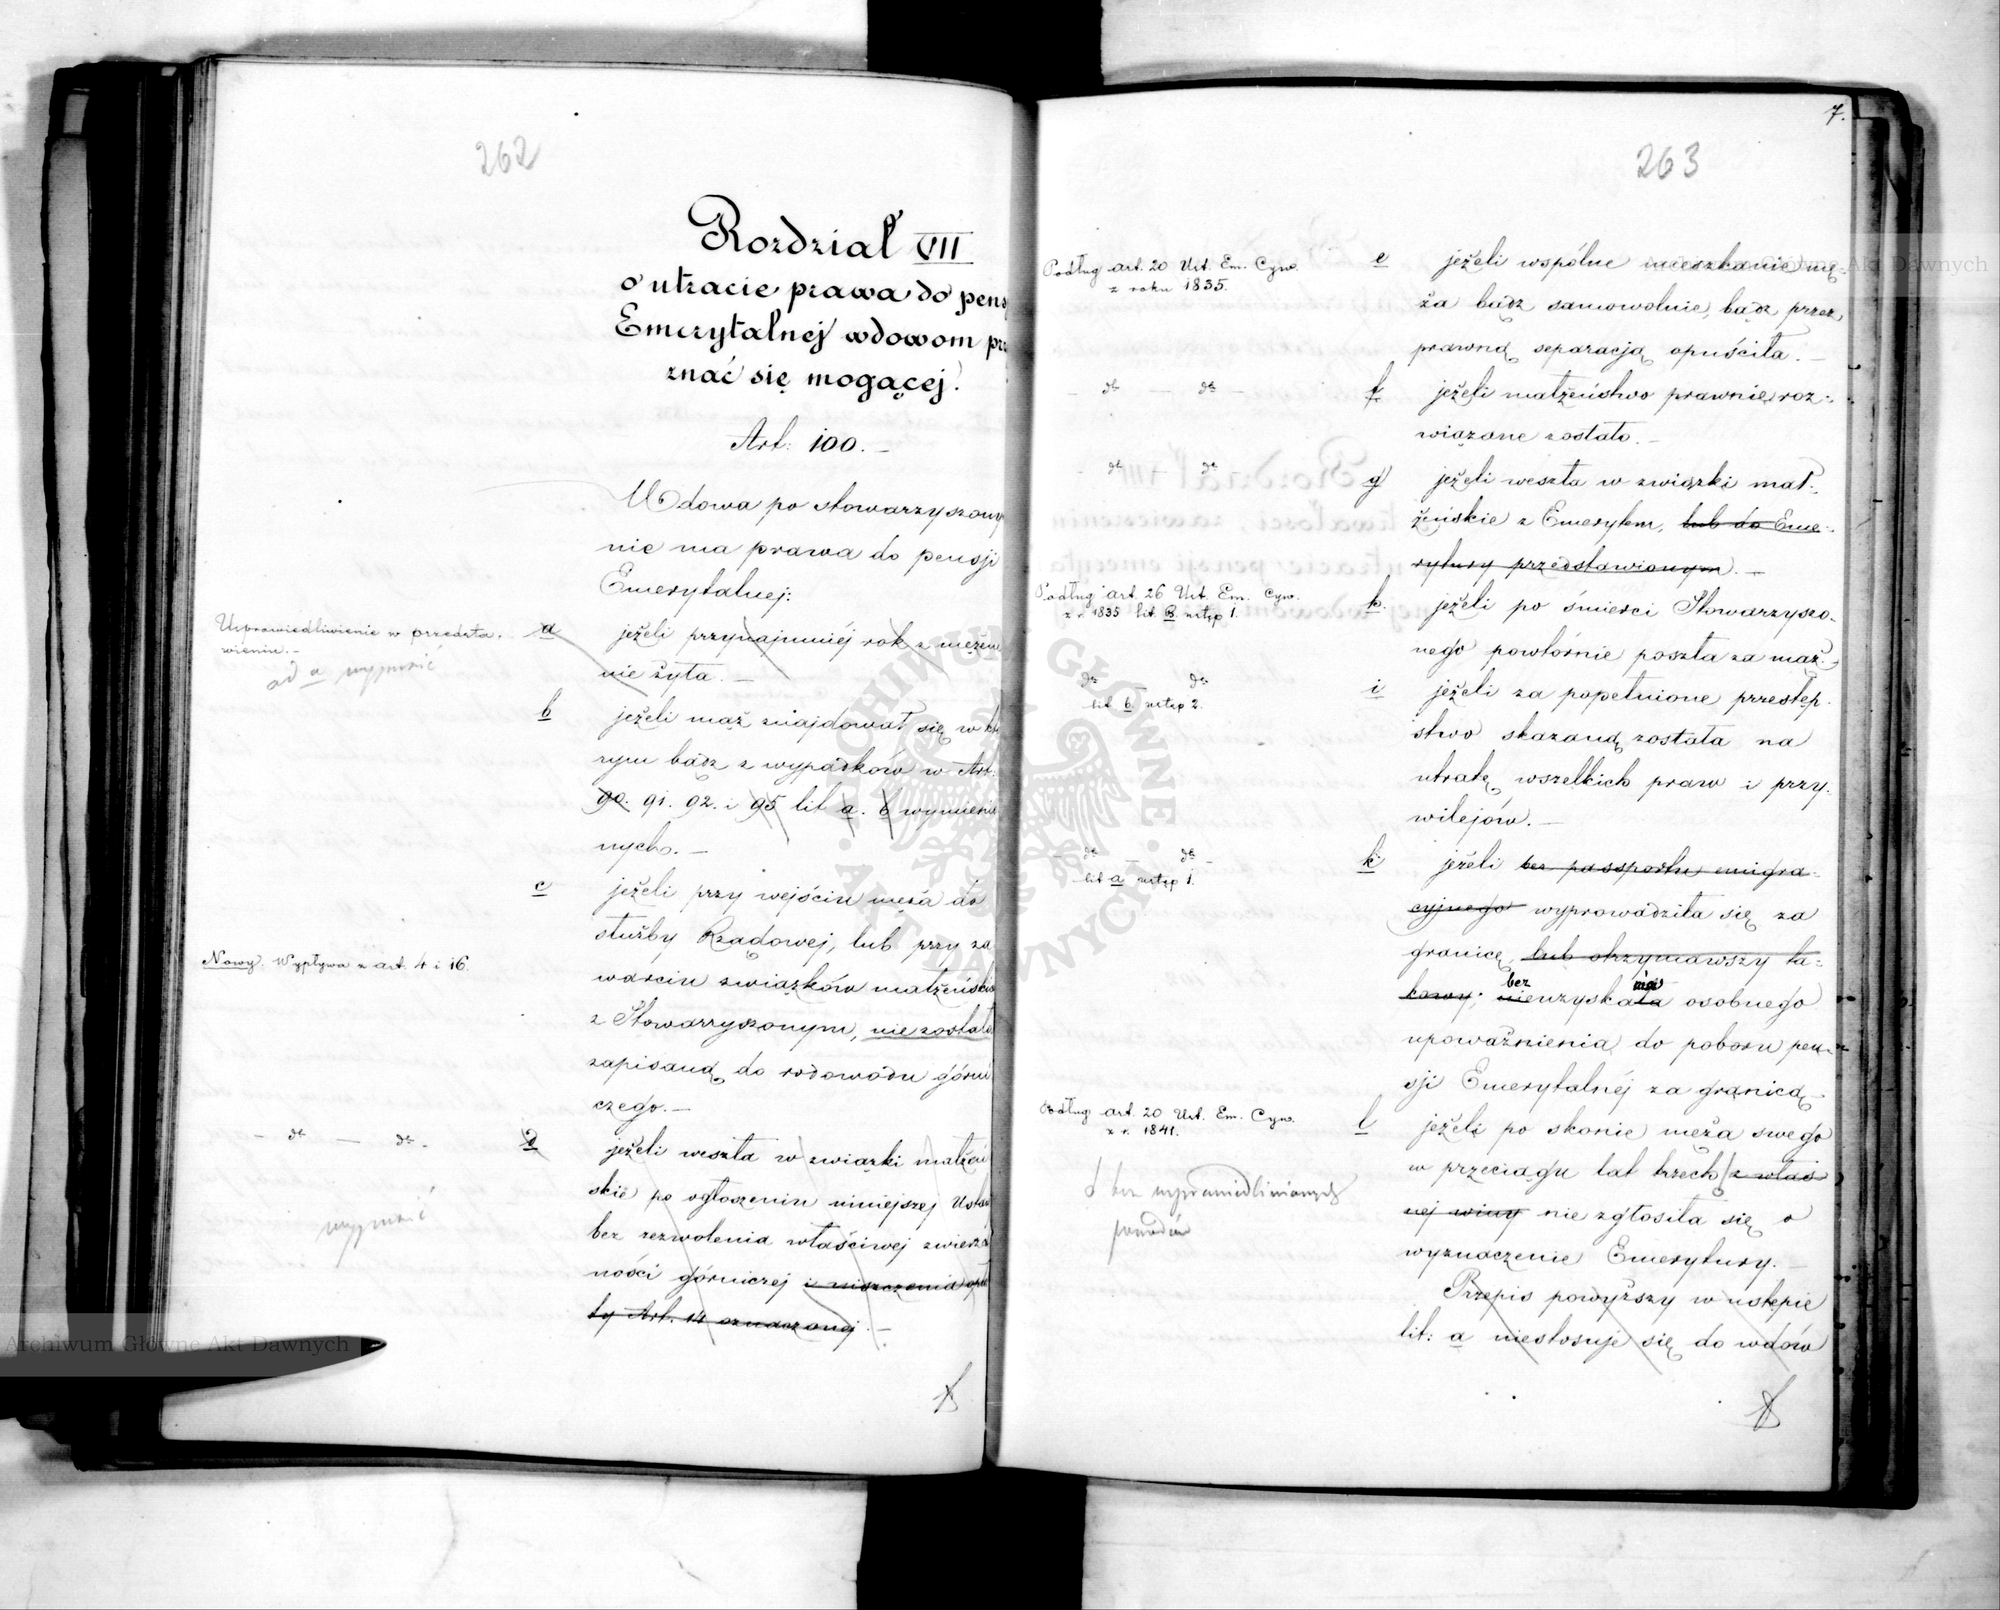 262
Rozdział VII
o utracie prawa do pens
Emerytalnéj wdowom prz
znać się mogącéj.
Art: 100. –
Wdowa po stowarzyszony
nie ma prawa do pensji
Emerytalnéj:
Usprawiedliwienie w przedsta-
wieniu. –
od a wyjmuić
a jeżeli przynajmniéj rok z mężem
nie żyła. –
b jeżeli mąż znajdował się w któ
rym bądź z wypadków w Art:
90. 91. 92. i 95 lit a. b wymienio
nych. –
c jeżeli przy wejściu męża do
służby Rządowéj, lub przy za
warciu związków małżeńskich
z Stowarzyszonym, nie została
zapisaną do rodowodu górni
czego. –
Nowy. Wypływa z art. 4 i 16.
– dto — dto –
d jeżeli weszła w związki małżeń
skie po ogłoszeniu niniejszéj Ustaw
bez zezwolenia właściwéj zwierzch
ności górniczéj i uiszczenia opła
ty Art. 14 oznaczonéj. –
7.
263
Podług art. 20 Ust. Em. Cyw.
z roku 1835.
e jeżeli wspólne mieszkanie mę-
ża bądź samowolnie, bądź przez
prawną separacją opuściła. –
– dto — dto –
f jeżeli małżeństwo prawnie roz-
wiązane zostało. –
– dto – dto
g jeżeli weszła w związki mał-
żeńskie z Emerytem, lub do Eme-
rytury przedstawionym. –
Podług art. 26 Ust. Em. Cyw.
z r. 1835 lit. B. ustęp 1.
h. jeżeli po śmierci Stowarzyszo-
nego powtórnie poszła za mąż.
dto — dto
lit b ustęp 2.
i jeżeli za popełnione przestęp-
stwo skazaną została na
utratę wszelkich praw i przy-
wilejów. –
– dto — dto –
lit a ustęp 1.
k jeżeli bez passportu emigra-
cyjnego wyprowadziła się za
granicę, lub otrzymawszy ta-
kowy; nieuzyskała osobnego
bez
upoważnienia do poboru pen-
sji Emerytalnéj za granicą –
Podług art. 20 Ust. Em. Cyw.
z r. 1841.
bez usprawiedliwionych
powodów
l jeżeli po skonie męża swego
w przeciągu lat trzech z włas
néj winy nie zgłosiła się o
wyznaczenie Emerytury. –
Przepis powyższy w ustępie
lit: a niestosuje się do wdów
Archiwum Główne Akt Dawnych
Archiwum Główne Akt Dawnych
ARCHIWUM GŁÓWNE AKT DAWNYCH